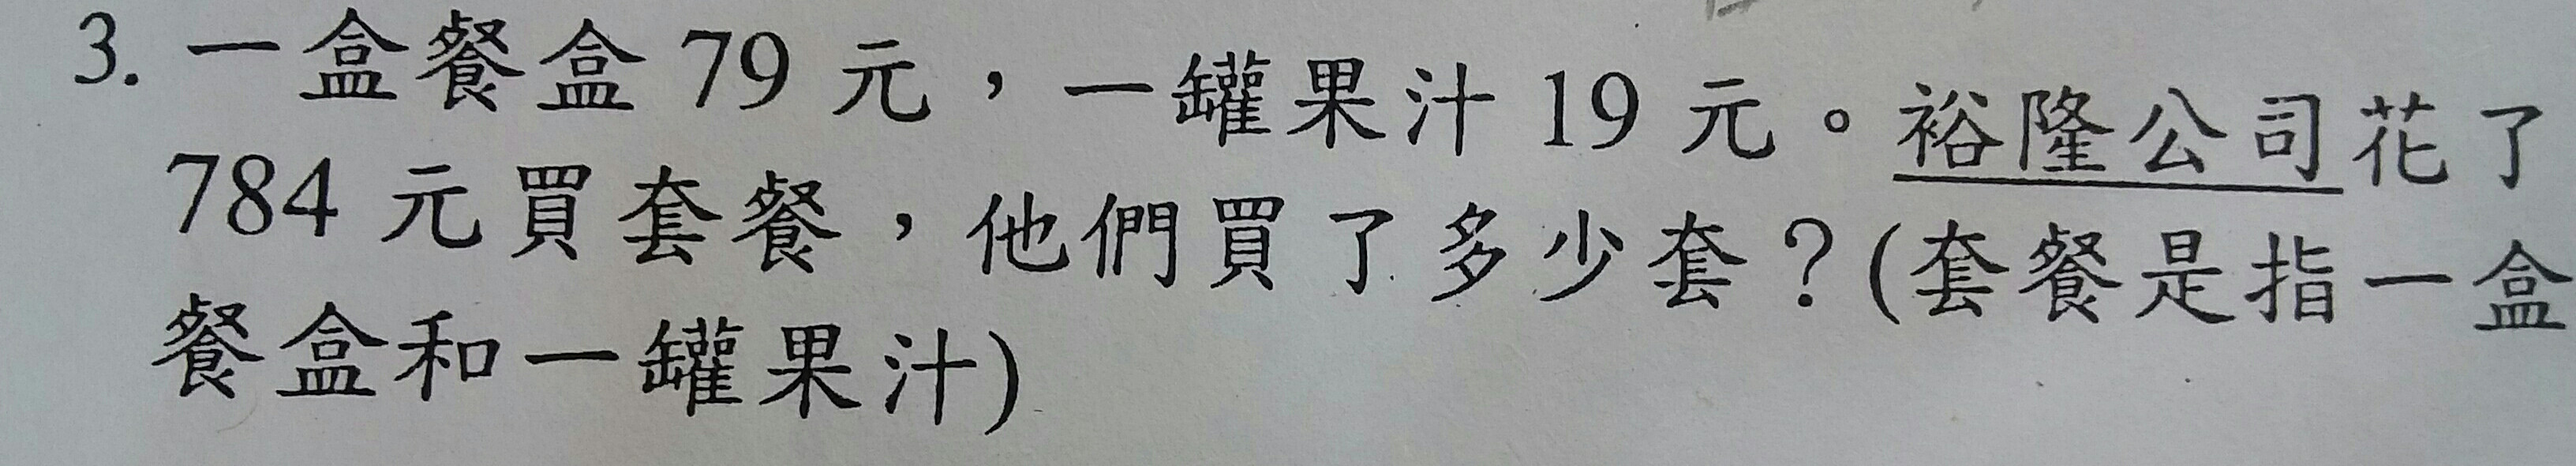 3. 一盒餐盒 79 元，一罐果汁 19 元。裕隆公司花了
784 元買套餐，他們買了多少套？(套餐是指一盒
餐盒和一罐果汁)